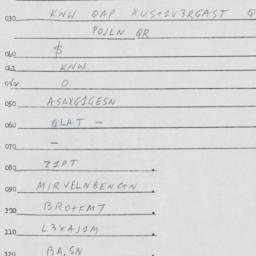 030 KNW QAP XUS+1V3RGAST Q
POJLN QR
040 $
041 KNW
04x O
050 ASAXG1GESN
060 BLAT -
070 -
080 Z1PT
090 MIRVELNBENC+N
100 BRO+FM7
110 L3XAJ1M
120 BA,SN